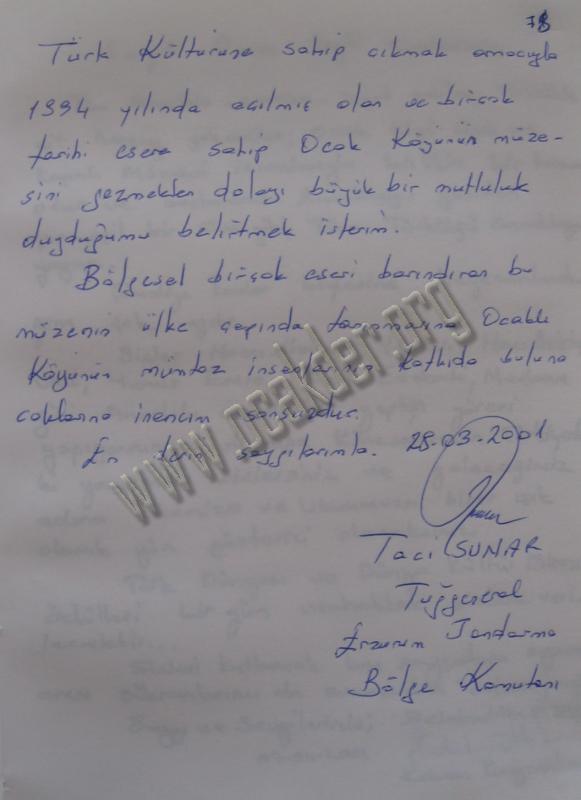 78
Türk Kültürüne sahip çıkmak amacıyla
1994 yılında açılmış olan ve birçok
tarihi esere sahip Ocak Köyünün müze-
sini gezmekten dolayı büyük bir mutluluk
duyduğumu belirtmek isterim.
Bölgesel birçok eseri barındıran bu
müzenin ülke çapında tanınmasına Ocak
Köyünün mümtaz insanlarının katkıda buluna
caklarına inancım sonsuzdur.
En derin saygılarımla. 28-03-2001
Tacı SUNAR
Tuğgeneral
Erzurum Jandarma
Bölge Komutanı
www.ocakder.org